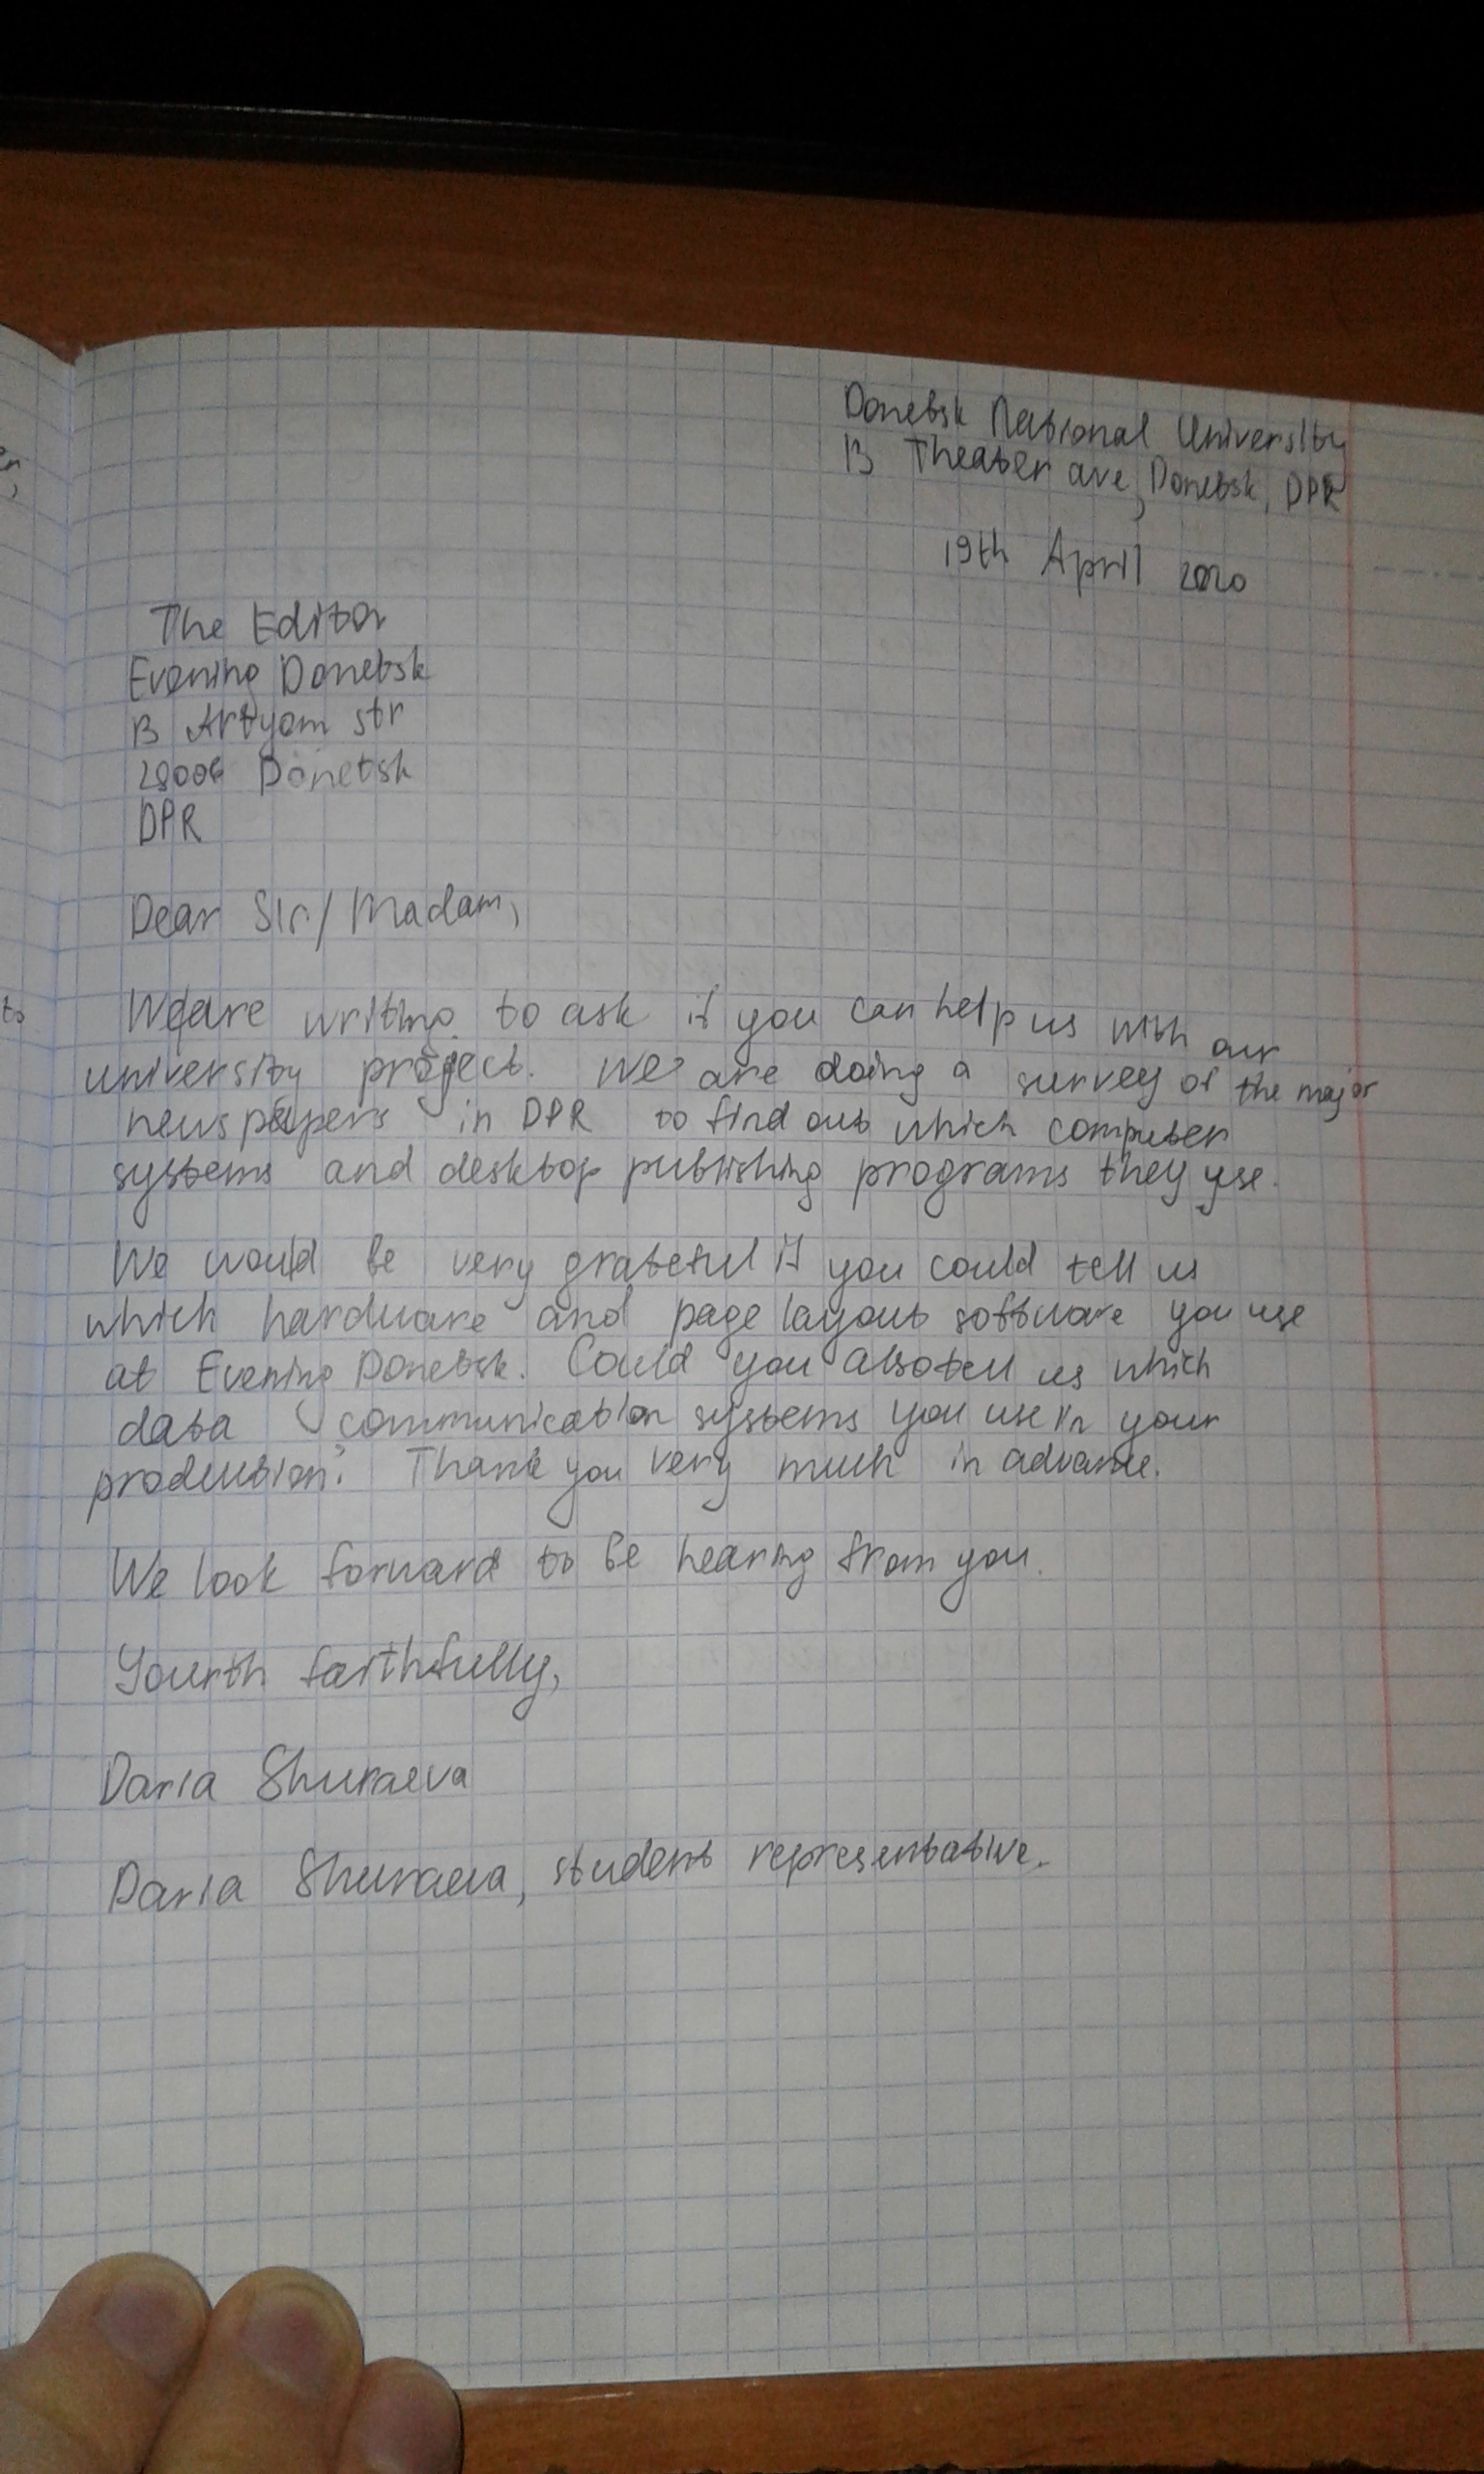 Donetsk National University
13 Theater ave, Donetsk, DPR
19th April 2020
The Editor
Evening Donetsk
13 Artyom str
28006 Donetsk
DPR
Dear Sir/Madam,
We are writing to ask if you can help us with our
university project. We are doing a survey of the major
newspapers in DPR to find out which computer
systems and desktop publishing programs they use.
We would be very grateful if you could tell us
which hardware and page layout software you use
at Evening Donetsk. Could you also tell us which
data communication systems you use in your
production? Thank you very much in advance.
We look forward to be hearing from you.
Yourth faithfully,
Daria Shuraeva
Daria Shuraeva, student representative.
to